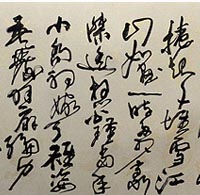 捲起千堆雪江
山如畫一時多少豪
傑遙想公瑾當年
小喬初嫁了雄姿
英發羽扇綸巾